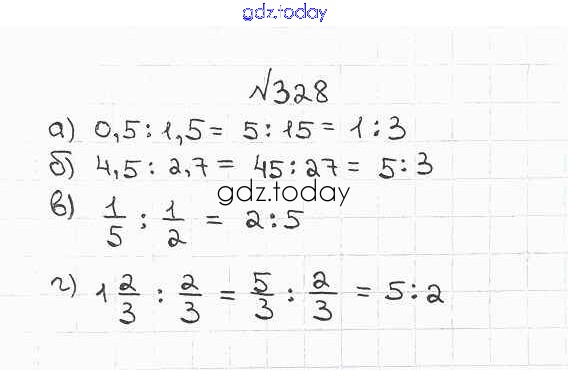 gdz.today
№328
а) 0,5 : 1,5 = 5 : 15 = 1 : 3
б) 4,5 : 2,7 = 45 : 27 = 5 : 3
gdz.today
в) 1/5 : 1/2 = 2 : 5
г) 1 2/3 : 2/3 = 5/3 : 2/3 = 5 : 2